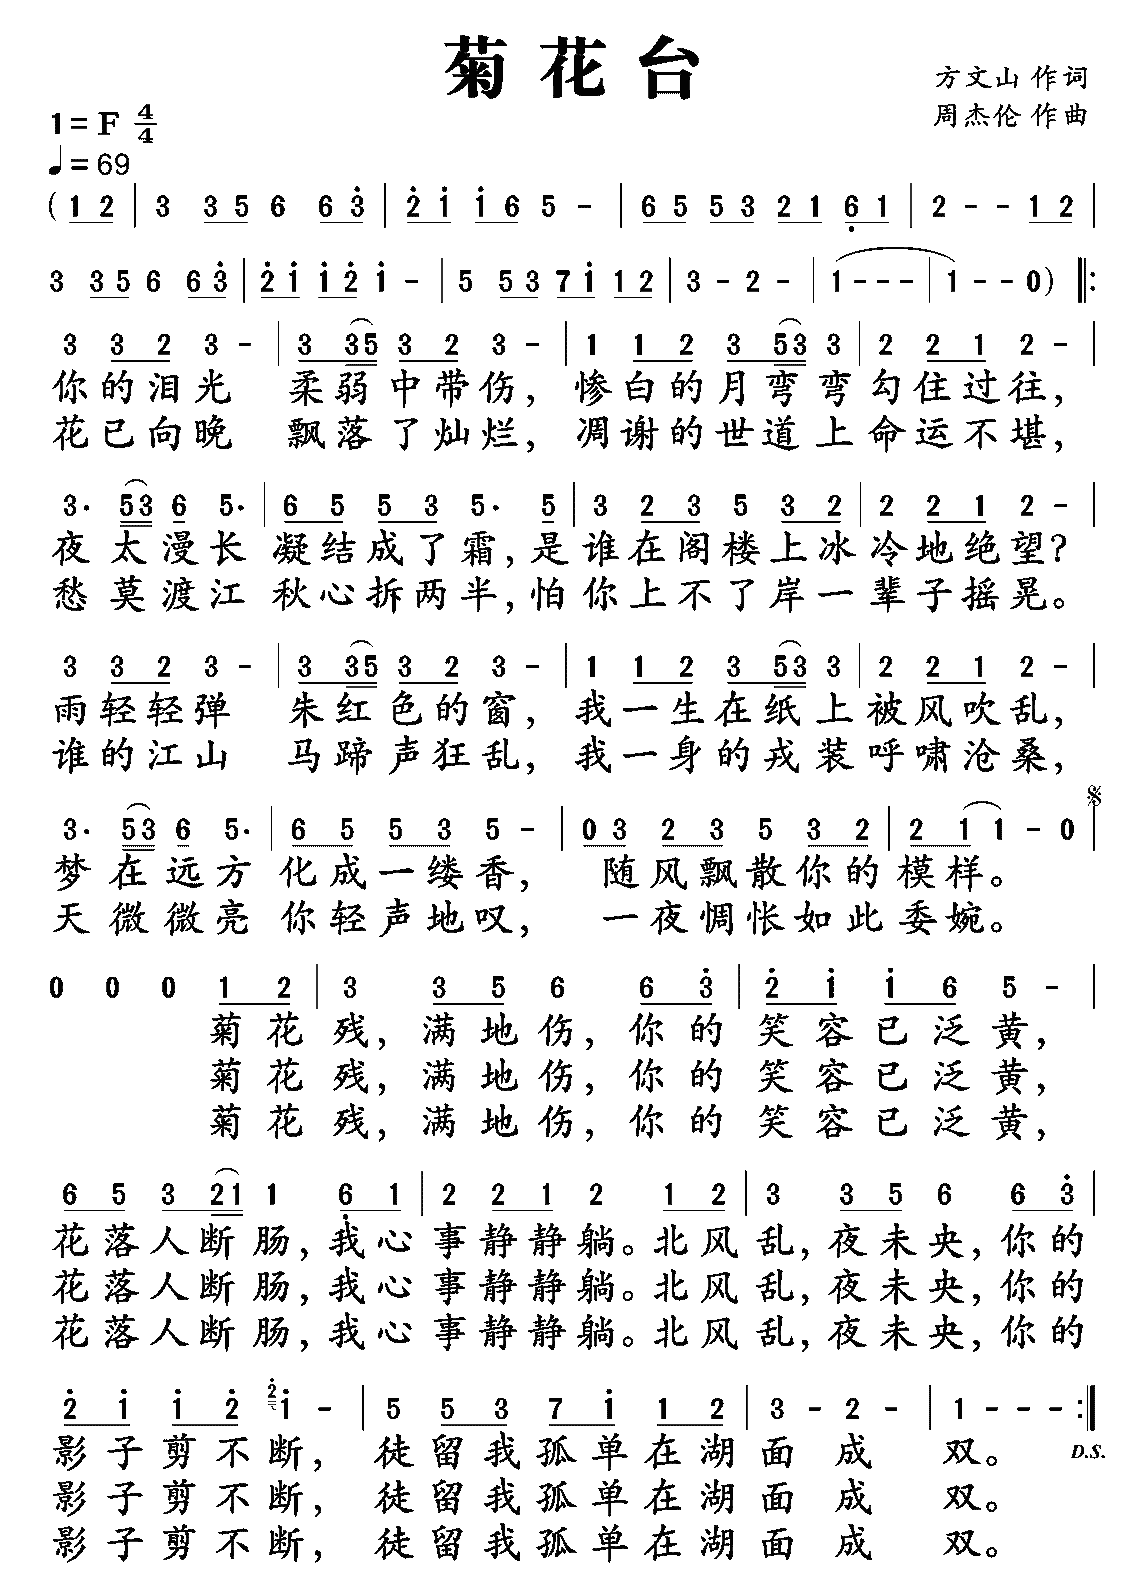 菊花台
方文山 作词
周杰伦 作曲
1=F 4/4
♩=69
( 1 2 | 3 3 5 6 6 3̇ | 2̇ 1̇ 1̇ 6 5 - | 6 5 5 3 2 1 6̣ 1 | 2 - - 1 2 |
3 3 5 6 6 3̇ | 2̇ 1̇ 1̇ 2̇ 1̇ - | 5 5 3 7 1̇ 1 2 | 3 - 2 - | 1 - - - | 1 - - 0 ) ‖:
3 3 2 3 - | 3 3 5 3 2 3 - | 1 1 2 3 5 3 3 | 2 2 1 2 - |
你的泪光 柔弱中带伤, 惨白的月弯弯勾住过往,
花已向晚 飘落了灿烂, 凋谢的世道上命运不堪,
3· 5 3 6 5· | 6 5 5 3 5· 5 | 3 2 3 5 3 2 | 2 2 1 2 - |
夜太漫长 凝结成了霜, 是谁在阁楼上冰冷地绝望?
愁莫渡江 秋心拆两半, 怕你上不了岸一辈子摇晃。
3 3 2 3 - | 3 3 5 3 2 3 - | 1 1 2 3 5 3 3 | 2 2 1 2 - |
雨轻轻弹 朱红色的窗, 我一生在纸上被风吹乱,
谁的江山 马蹄声狂乱, 我一身的戎装呼啸沧桑,
3· 5 3 6 5· | 6 5 5 3 5 - | 0 3 2 3 5 3 2 | 2 1 1 - 0 |
梦在远方 化成一缕香, 随风飘散你的模样。
天微微亮 你轻声地叹, 一夜惆怅如此委婉。
0 0 0 1 2 | 3 3 5 6 6 3̇ | 2̇ 1̇ 1̇ 6 5 - |
菊花残, 满地伤, 你的笑容已泛黄,
菊花残, 满地伤, 你的笑容已泛黄,
菊花残, 满地伤, 你的笑容已泛黄,
6 5 3 2 1 1 6̣ 1 | 2 2 1 2 1 2 | 3 3 5 6 6 3̇ |
花落人断肠, 我心事静静躺。北风乱, 夜未央, 你的
花落人断肠, 我心事静静躺。北风乱, 夜未央, 你的
花落人断肠, 我心事静静躺。北风乱, 夜未央, 你的
2̇ 1̇ 1̇ 2̇ 2̇ 1̇ - | 5 5 3 7 1̇ 1 2 | 3 - 2 - | 1 - - - :‖
影子剪不断, 徒留我孤单在湖面成双。 D.S.
影子剪不断, 徒留我孤单在湖面成双。
影子剪不断, 徒留我孤单在湖面成双。